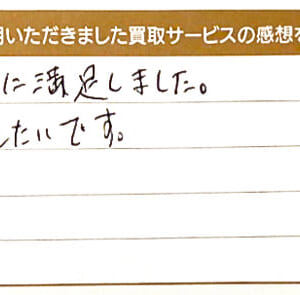 用いただきました買取サービスの感想を
に満足しました。
したいです。